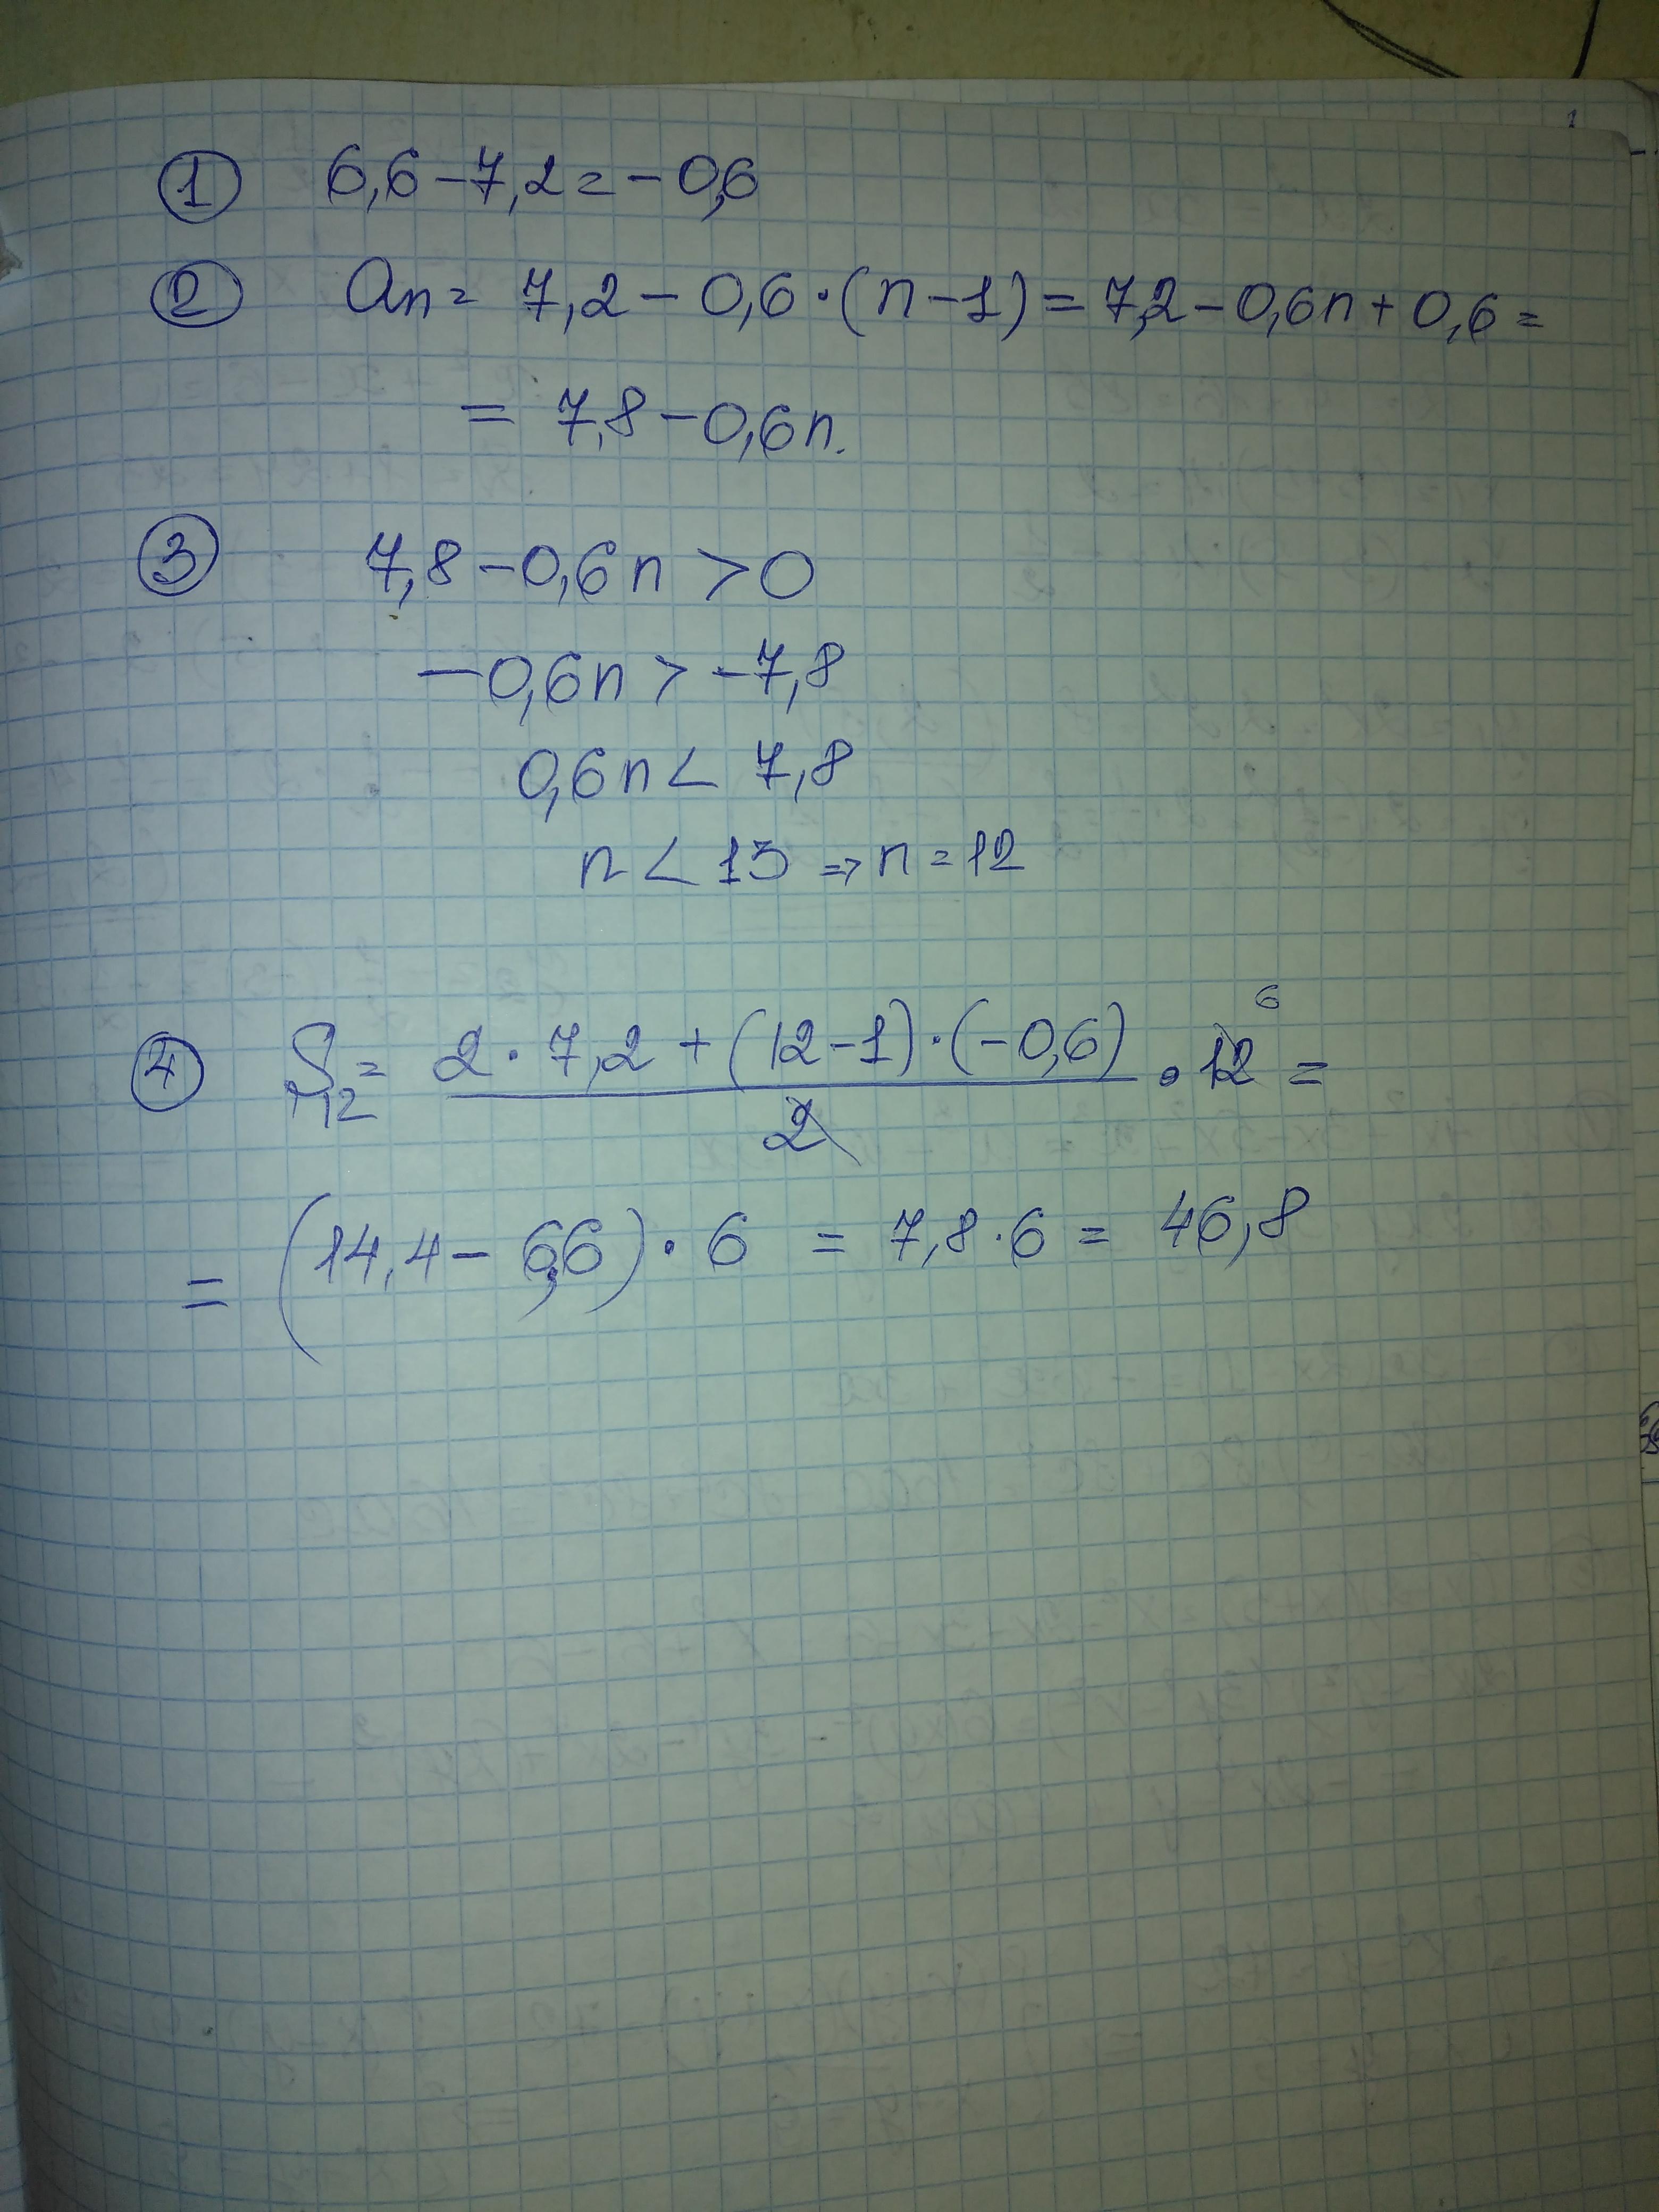 ① 6,6-7,2=-0,6
② an= 7,2-0,6·(n-1)=7,2-0,6n+0,6=
= 7,8-0,6n.
③ 7,8-0,6n>0
-0,6n>-7,8
0,6n<7,8
n<13 ⇒ n=12
6
④ S12= 2·7,2+(12-1)·(-0,6) · 12 =
2
= (14,4-6,6)·6 = 7,8·6 = 46,8